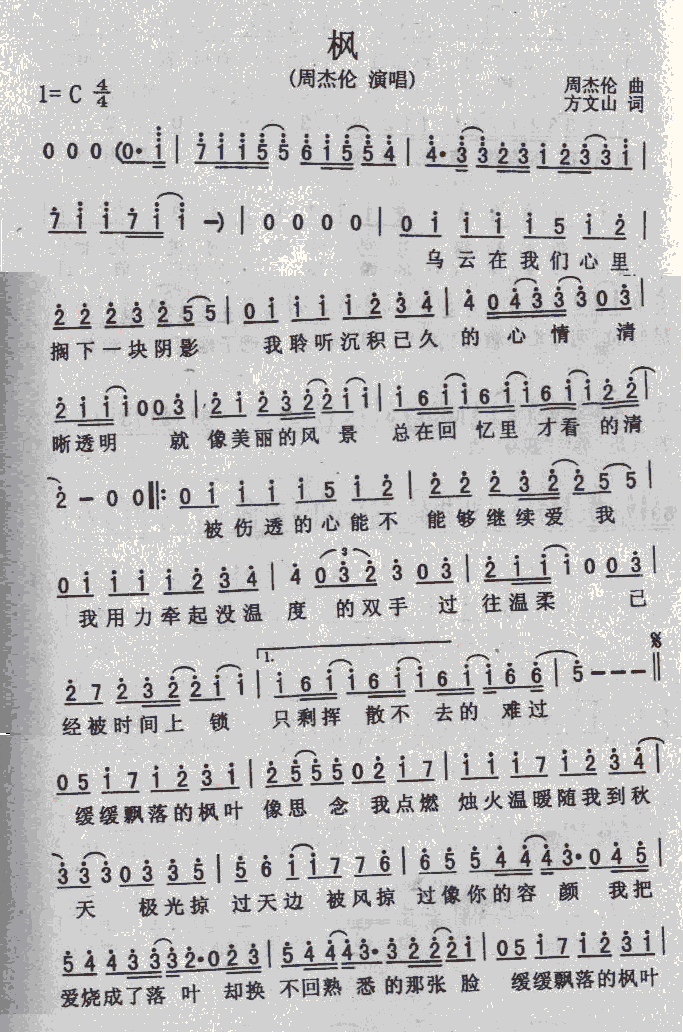 枫
(周杰伦 演唱)
1= C 4/4
周杰伦 曲
方文山 词
0 0 0 (0· i | 7 i i 5 5 6 i 5 5 4 | 4· 3 3 2 3 i 2 3 3 i |
7 i i 7 i i -) | 0 0 0 0 | 0 i i i i 5 i 2 |
乌云在我们心里
2 2 2 3 2 5 5 | 0 i i i i 2 3 4 | 4 0 4 3 3 3 0 3 |
搁下一块阴影 我聆听沉积已久 的 心 情 清
2 i i i 0 0 3 | 2 i 2 3 2 2 i i | i 6 i i 6 i i 6 i i 2 2 |
晰透明 就 像美丽的风 景 总在回 忆里 才看 的清
2 - 0 0 ‖: 0 i i i i 5 i 2 | 2 2 2 3 2 2 5 5 |
被伤透的心能不 能够继续爱 我
0 i i i i 2 3 4 | 4 0 3 2 3 0 3 | 2 i i i 0 0 3 |
3
我用力牵起没温 度 的双手 过 往温柔 已
1.
2 7 2 3 2 2 i i | i 6 i i 6 i i 6 i i 6 6 | 5 - - - ‖
经被时间上 锁 只剩挥 散不 去的 难过
0 5 i 7 i 2 3 i | 2 5 5 5 0 2 i 7 | i i i 7 i 2 3 4 |
缓缓飘落的枫叶 像思 念 我点燃 烛火温暖随我到秋
3 3 3 0 3 3 5 | 5 6 i i 7 7 6 | 6 5 5 4 4 4 3· 0 4 5 |
天 极光掠 过天边 被风掠 过像你的容 颜 我把
5 4 4 3 3 3 2· 0 2 3 | 5 4 4 4 3· 3 2 2 2 i | 0 5 i 7 i 2 3 i |
爱烧成了落 叶 却换 不回熟 悉的那张 脸 缓缓飘落的枫叶